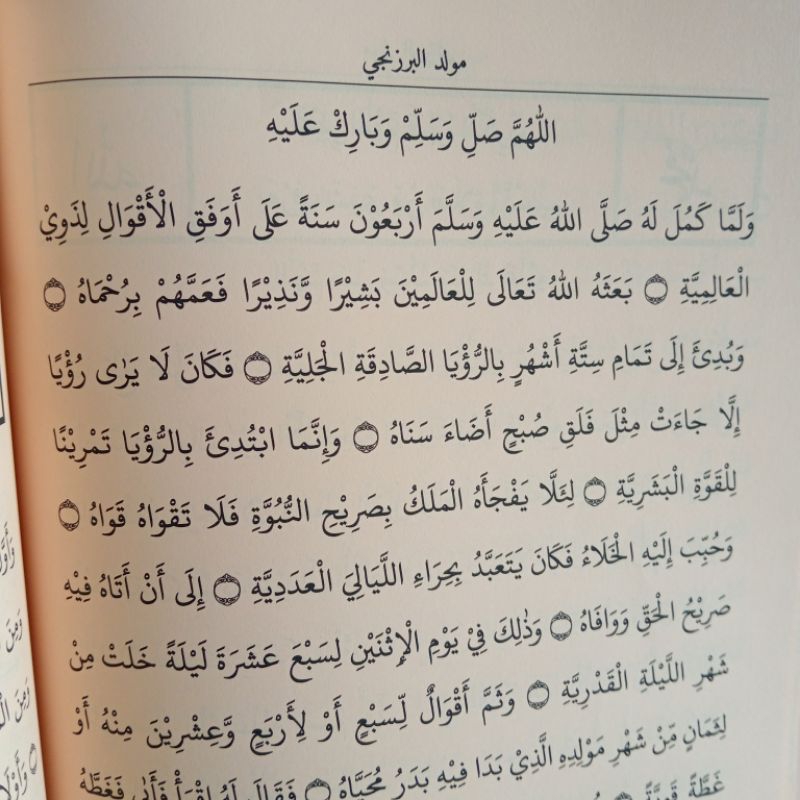 مولد البرزنجي
اللّٰهُمَّ صَلِّ وَسَلِّمْ وَبَارِكْ عَلَيْهِ
وَلَمَّا كَمُلَ لَهُ صَلَّى اللهُ عَلَيْهِ وَسَلَّمَ أَرْبَعُوْنَ سَنَةً عَلَى أَوْفَقِ الْأَقْوَالِ لِذَوِيْ
الْعَالِمِيَّةِ ۝ بَعَثَهُ اللهُ تَعَالَى لِلْعَالَمِيْنَ بَشِيْرًا وَّنَذِيْرًا فَعَمَّهُمْ بِرُحْمَاهُ ۝
وَبُدِئَ إِلَى تَمَامِ سِتَّةِ أَشْهُرٍ بِالرُّؤْيَا الصَّادِقَةِ الْجَلِيَّةِ ۝ فَكَانَ لَا يَرٰى رُؤْيًا
إِلَّا جَاءَتْ مِثْلَ فَلَقِ صُبْحٍ أَضَاءَ سَنَاهُ ۝ وَإِنَّمَا ابْتُدِئَ بِالرُّؤْيَا تَمْرِيْنًا
لِلْقَوَّةِ الْبَشَرِيَّةِ ۝ لِئَلَّا يَفْجَأَهُ الْمَلَكُ بِصَرِيْحِ النُّبُوَّةِ فَلَا تَقْوَاهُ قَوَاهُ ۝
وَحُبِّبَ إِلَيْهِ الْخَلَاءُ فَكَانَ يَتَعَبَّدُ بِحِرَاءِ اللَّيَالِيَ الْعَدَدِيَّةِ ۝ إِلَى أَنْ أَتَاهُ فِيْهِ
صَرِيْحُ الْحَقِّ وَوَافَاهُ ۝ وَذٰلِكَ فِيْ يَوْمِ الْإِثْنَيْنِ لِسَبْعَ عَشَرَةَ لَيْلَةً خَلَتْ مِنْ
شَهْرِ اللَّيْلَةِ الْقَدْرِيَّةِ ۝ وَثَمَّ أَقْوَالٌ لِّسَبْعٍ أَوْ لِأَرْبَعٍ وَّعِشْرِيْنَ مِنْهُ أَوْ
لِثَمَانٍ مِّنْ شَهْرِ مَوْلِدِهِ الَّذِيْ بَدَا فِيْهِ بَدَرُ مُحَيَّاهُ ۝ فَقَالَ لَهُ اِقْرَأْ فَأَبٰى فَغَطَّهُ
غَطَّةً قَوِيَّةً ۝